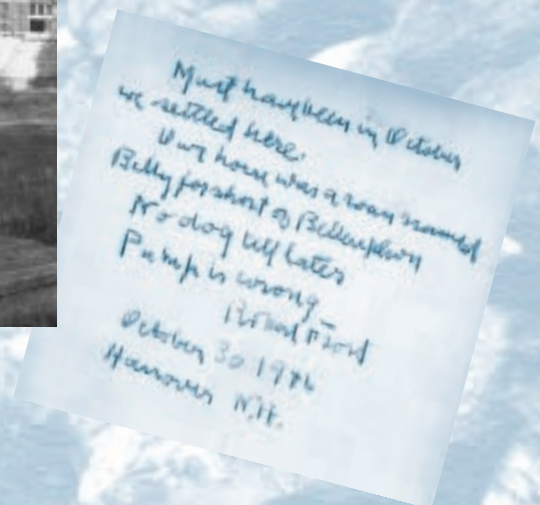 Must have been in October
we settled here.
Our horse was a roan named
Billy for short of Bellerophon
No dog till later
Pump is wrong
Robert Frost
October 30 1946
Hanover N.H.